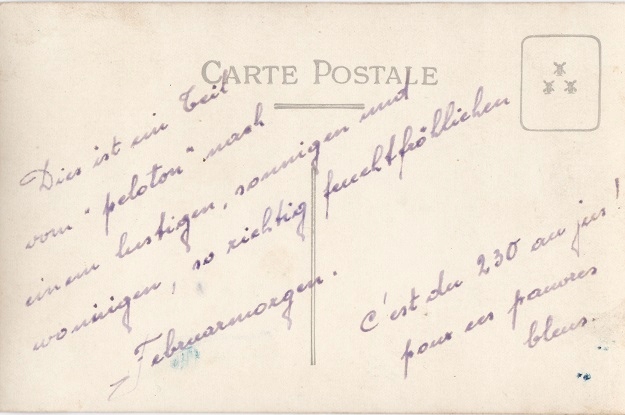 CARTE POSTALE
Dies ist ein Teil
vom "peloton" nach
einem lustigen, sonnigen und
wonnigen, so richtig feuchtfröhlichen
Februarmorgen.
C'est du 230 au jus!
pour ces pauvres
bleus.